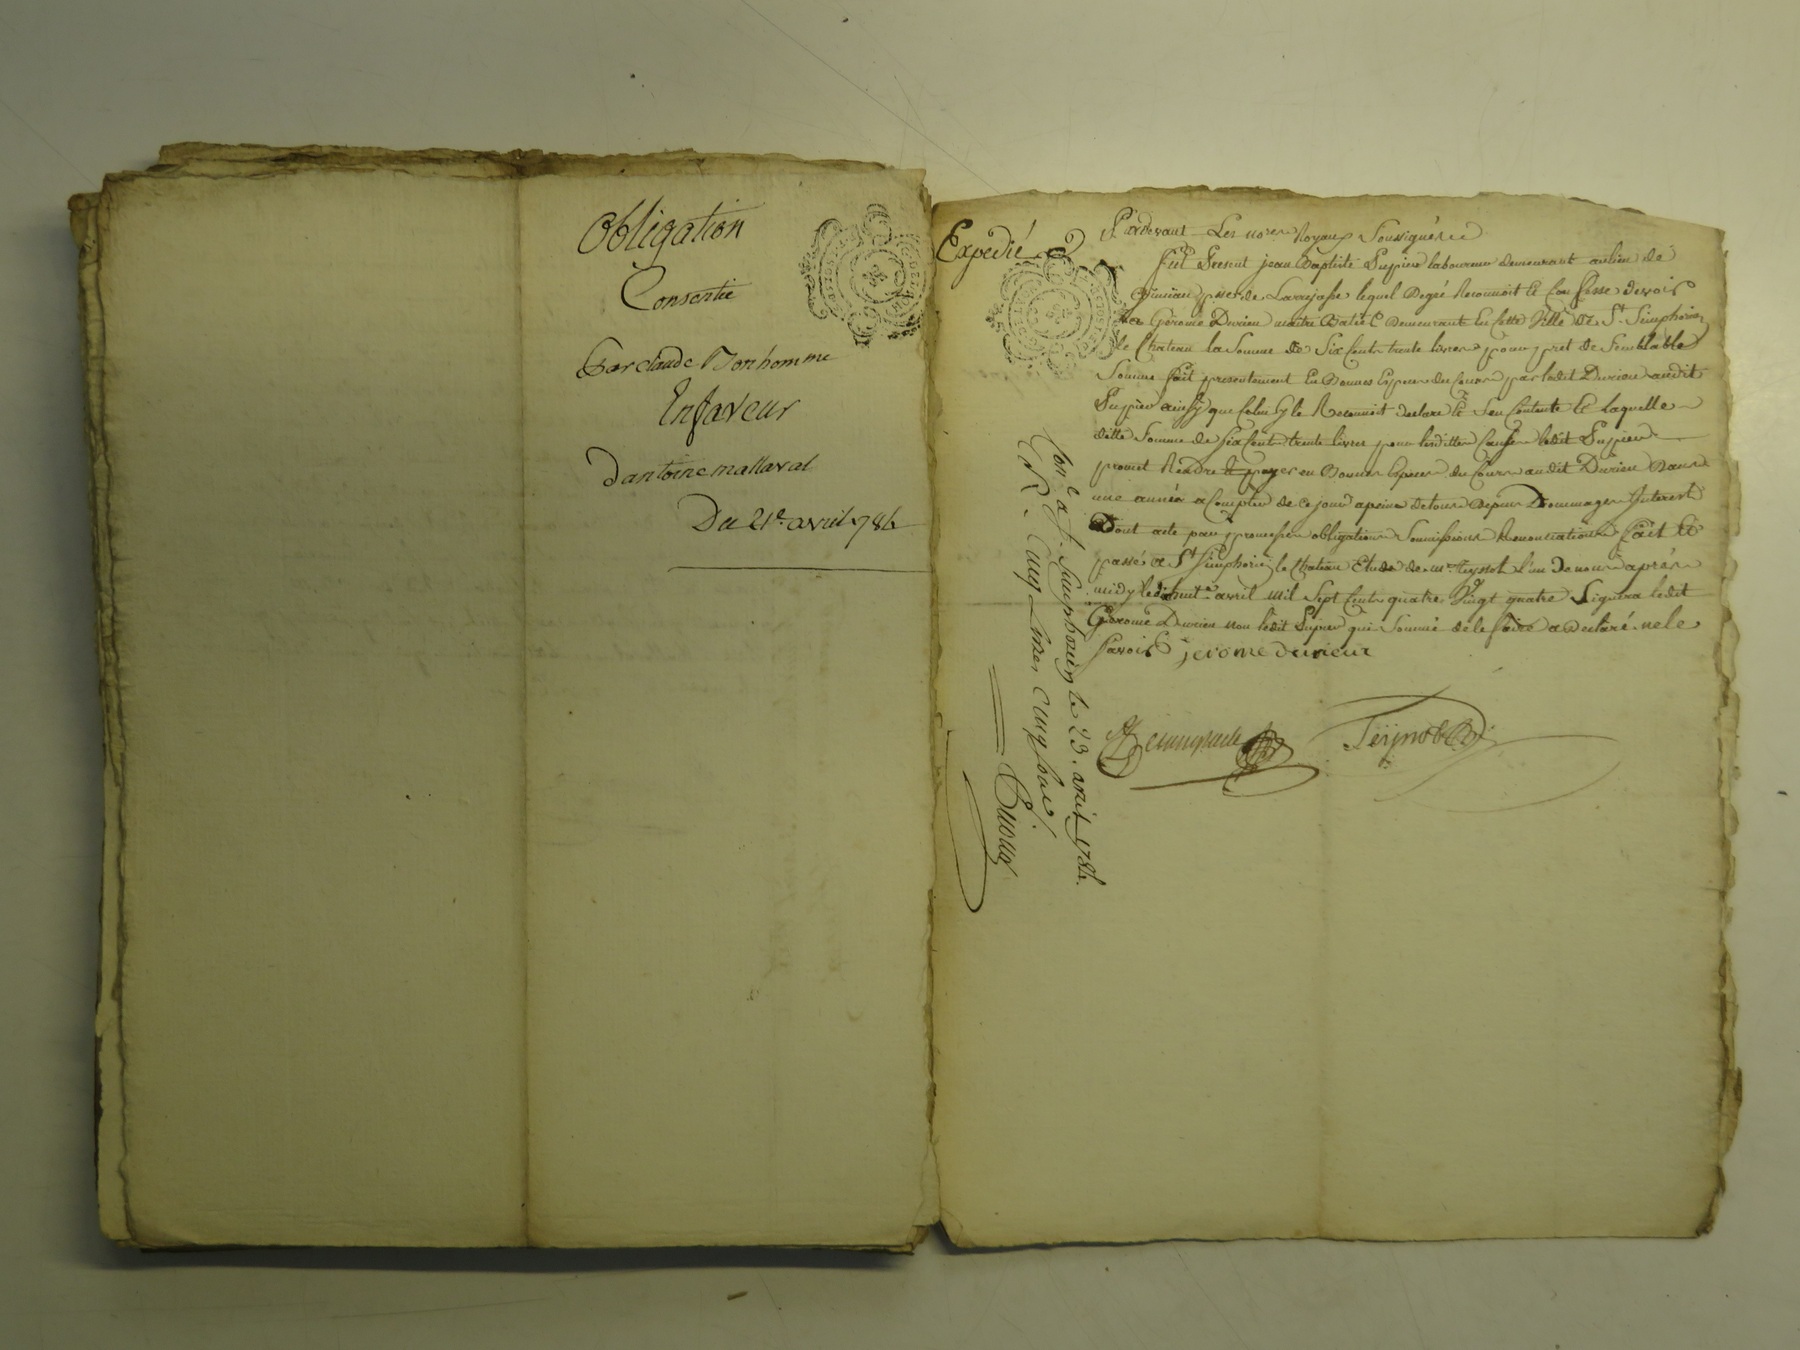 Obligation
Consentie
Par claude Bonhomme
Enfaveur
dantoine mallaval
Du 21e. avril 1784
Expedié
Pardevant Les nores Royaux Soussignés
fut Present jean Baptiste Supier laboureur demeurant au lieu de
psse de Larajasse lequel Degré Reconnoit Et Confesse devoir
a Gérome Durieu maitre Demeurant En Cette Ville de St. Simphorien
le Chateau la Somme de Six Cents trente livres pour pret de Semblable
Somme fait presentement En Bonnes Especes du Cours par ledit Durieu audit
Supier ainsy que Celuy cy le Reconnoit declare Et Sen Contente Et laquelle
ditte Somme de Six Cents trente livres pour lesdittes Causes ledit Supier
promet Rendre & payer en Bonnes Especes du Cours audit Durieu Dans
une année a Compter de Ce jour apeine de tous Depens Dommages Interest
Dont acte par promesses obligations Soumissions Renonciations fait Et
passé a St Simphorien le Chateau Etude de me Teyssot l'un De nous après
midy le dixhuit avril mil Sept Cents quatre Vingt quatre Signera ledit
Gerome Durieu non ledit Supier qui Sommé de le faire a Declaré ne le
Savoir jerome durieu
Conle a St. Simphorien le 23. avril 1784.
R. Cinq Livres Cinq Sols